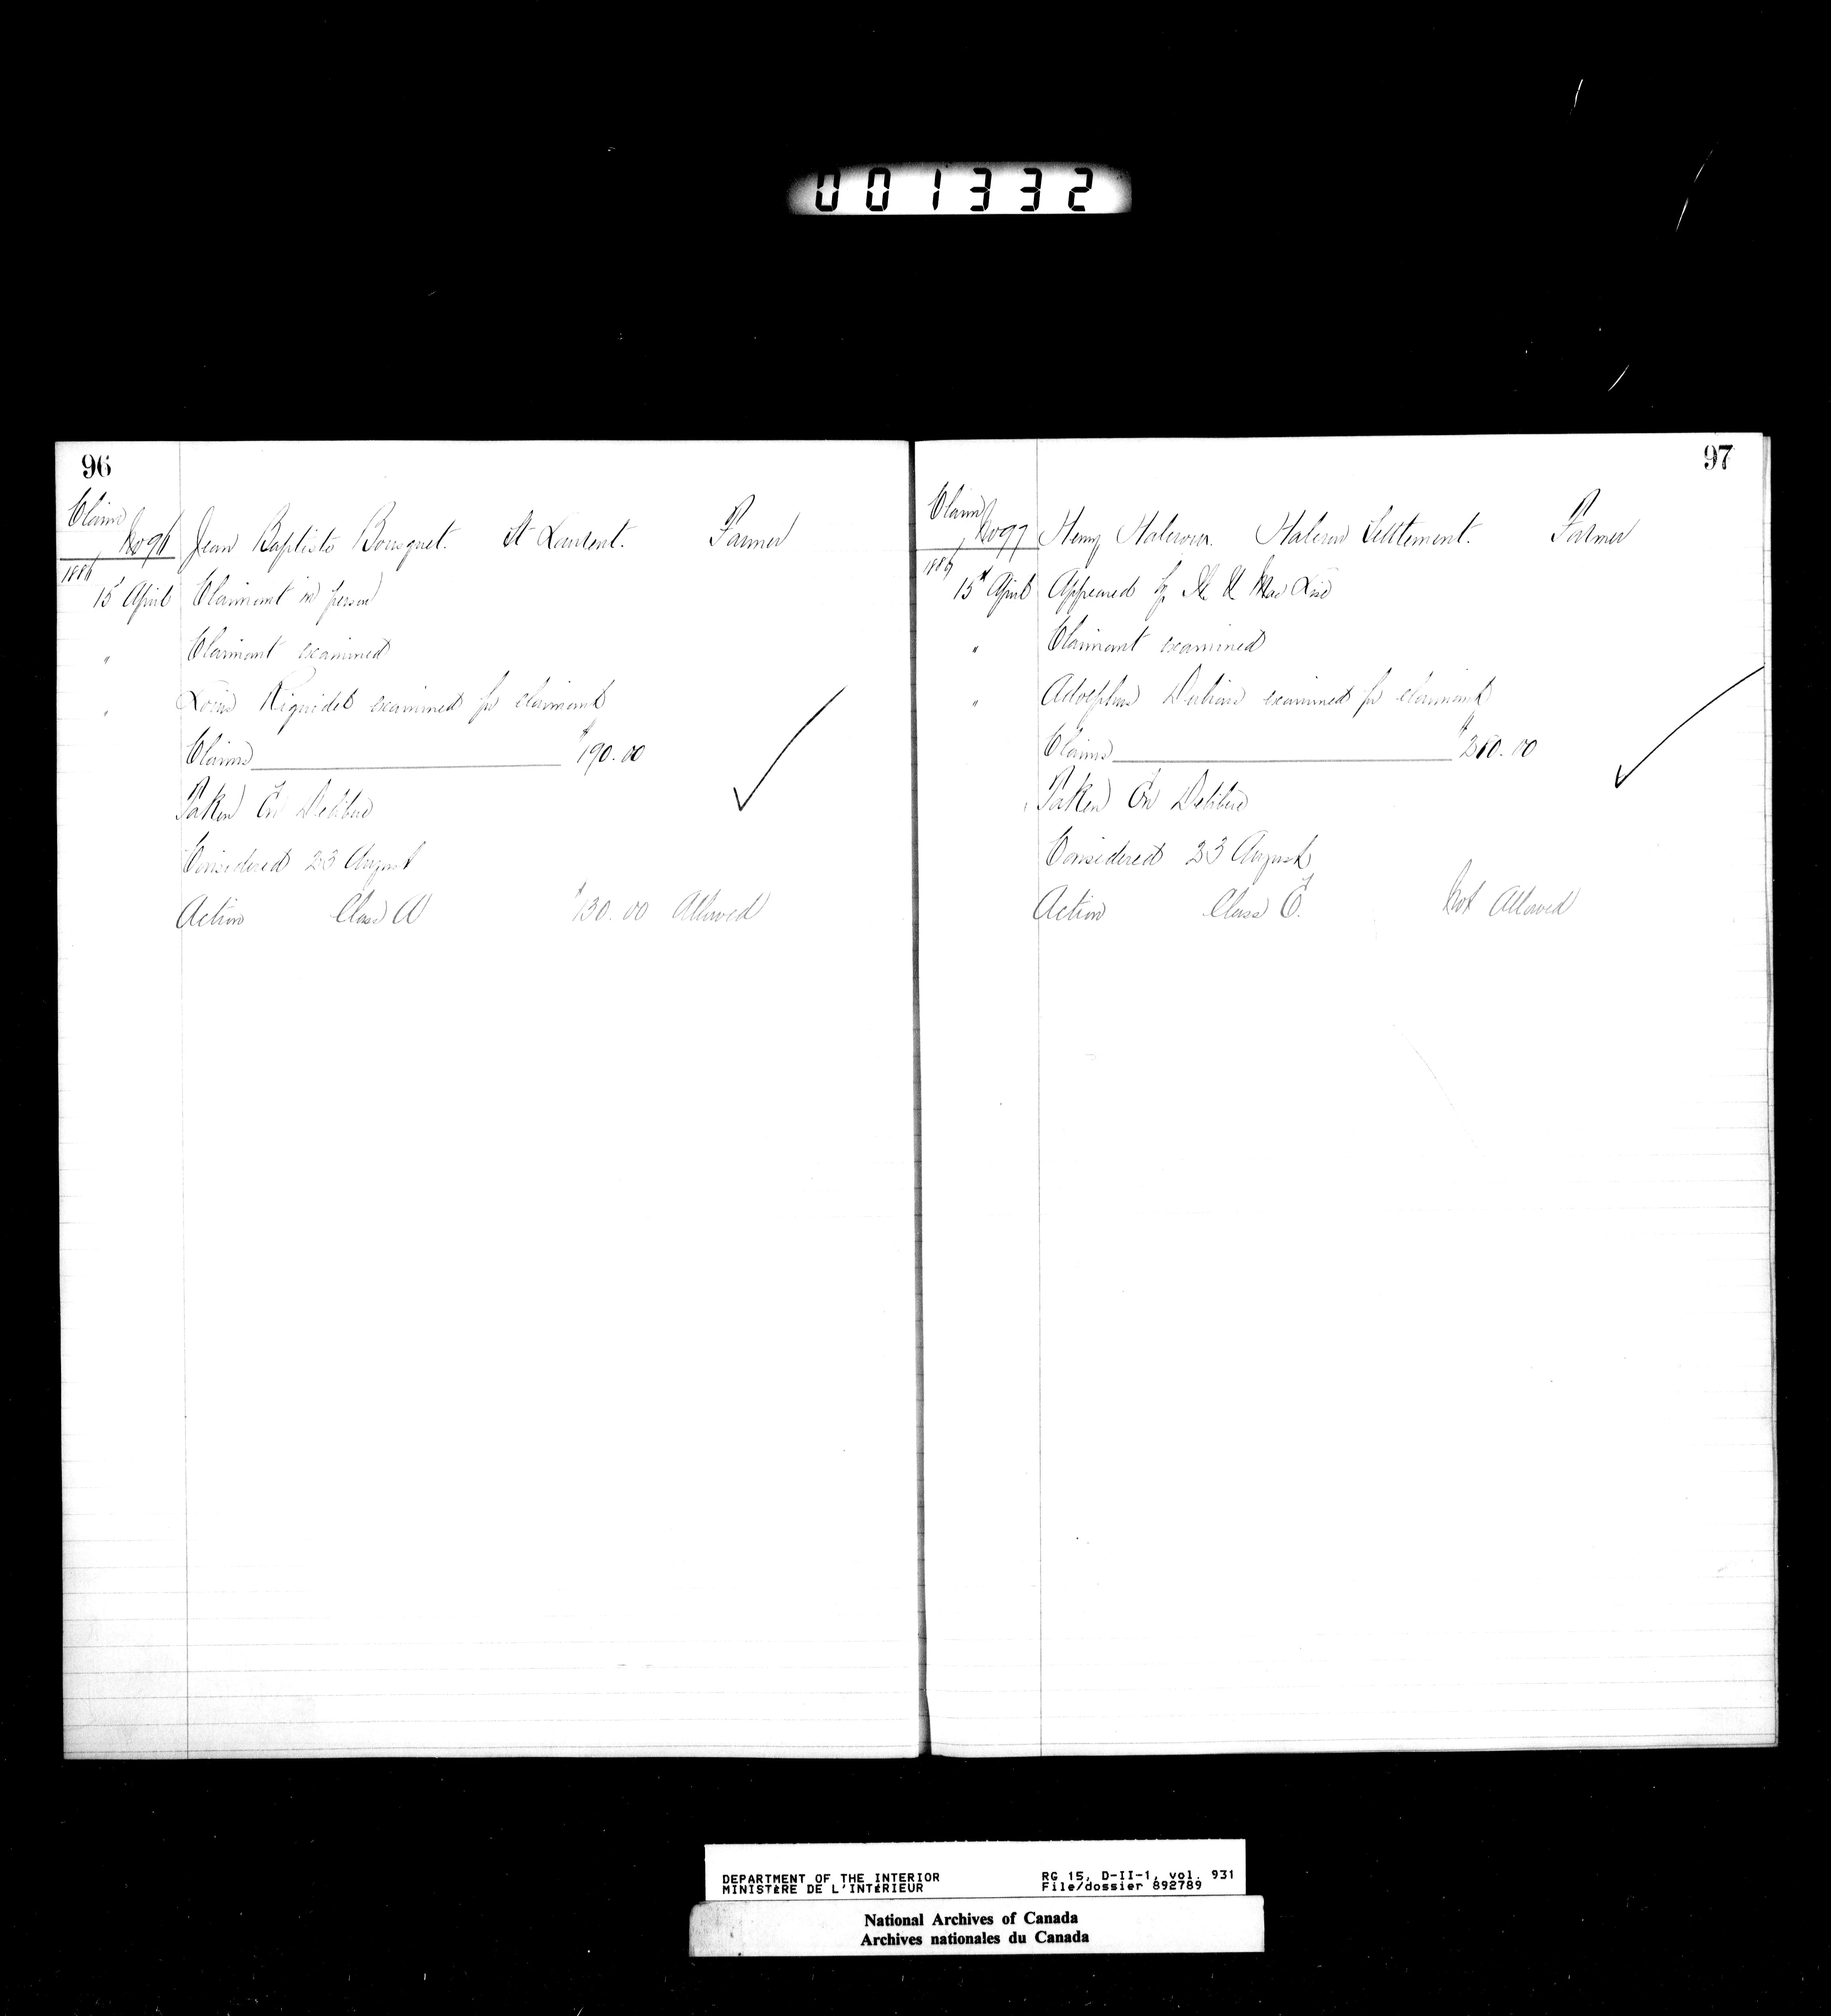 001332
96
Claim
No 96 Jean Baptiste Bousquet. St Laurent. Farmer
1886
15 April Claimant in person
" Claimant examined
" Louis Riguidel examined for claimant
Claims $190.00
Taken En Delibere
Considered 23 August
Action Class A $130.00 Allowed
97
Claim
No 97 Henry Halcrow. Halcrow Settlement. Farmer
1886
15th April Appeared by Mac Lise
" Claimant examined
" Adolphus examined for claimant
Claims
Taken En Delibere
Considered 23 August
Action Class Not Allowed
DEPARTMENT OF THE INTERIOR RG 15, D-II-1, vol. 931
MINISTÈRE DE L'INTÉRIEUR File/dossier 892789
National Archives of Canada
Archives nationales du Canada